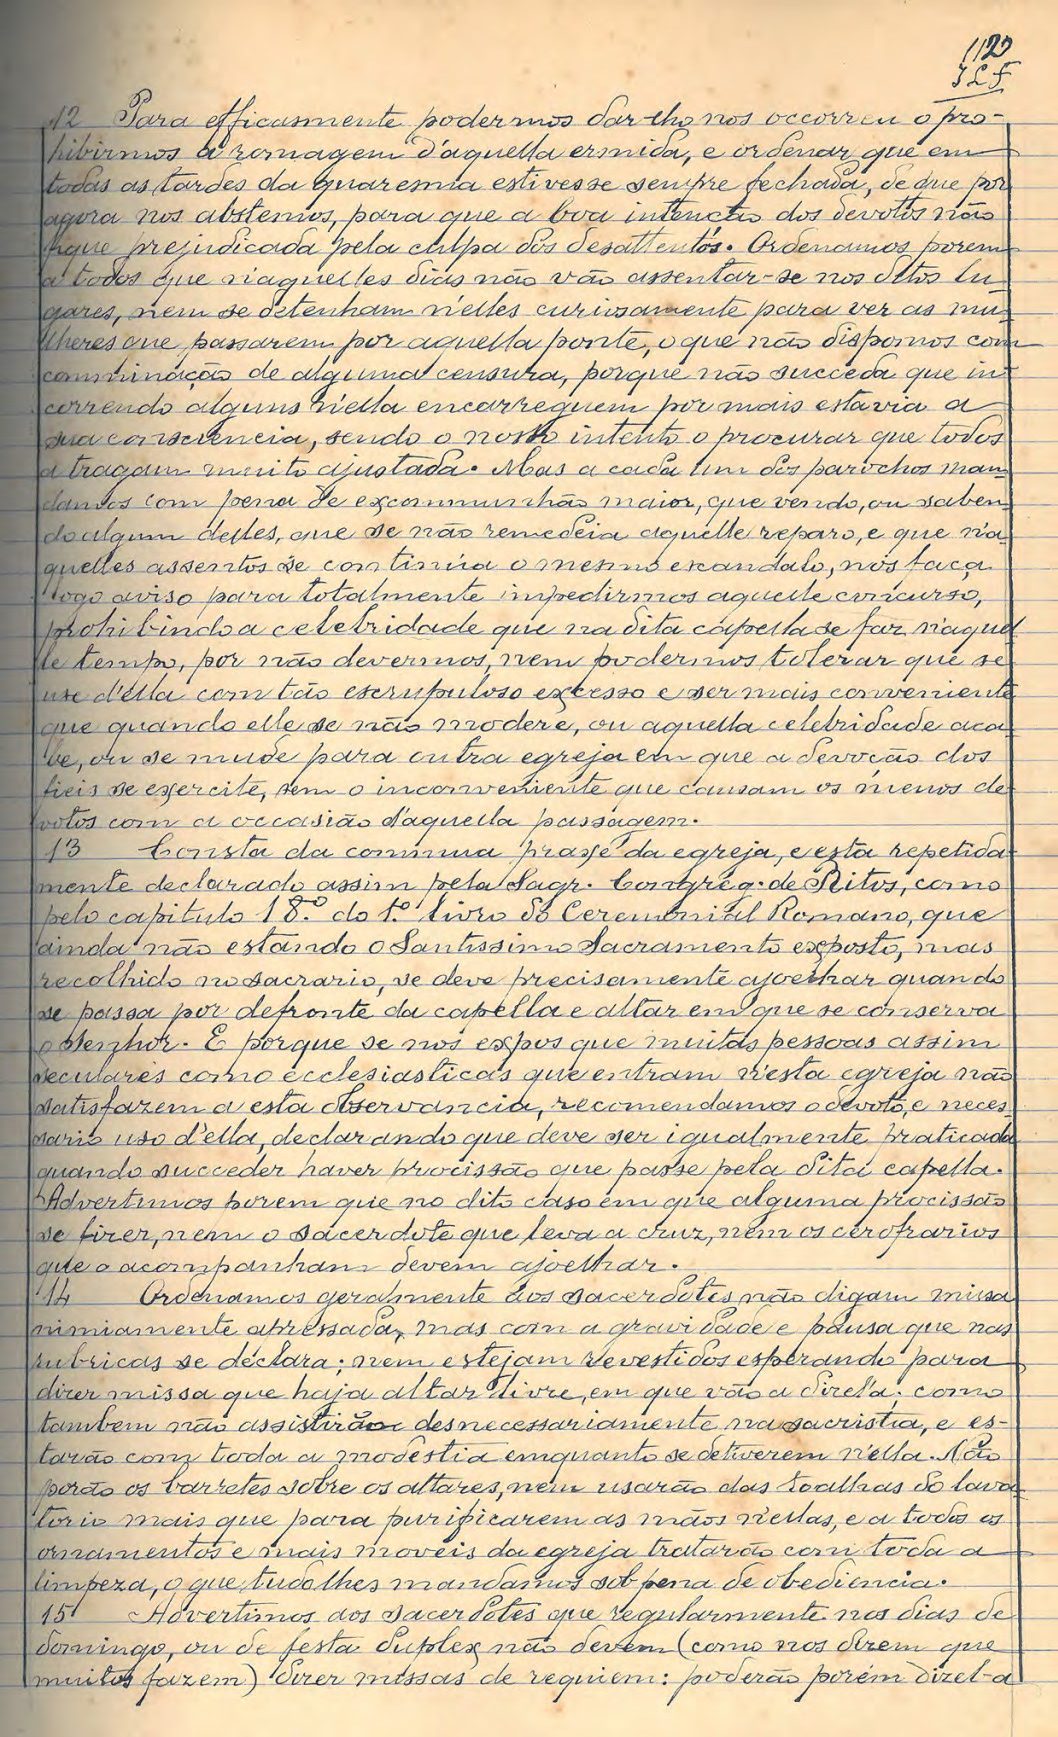 112
J L F
12 Para efficasmente podermos dar-lho nos occorreu o pro-
hibirmos a romagem d'aquella ermida, e ordenar que em
todas as tardes da quaresma estivesse sempre fechada, de que por
agora nos abstemos, para que a boa intenção dos devotos não
fique prejudicada pela culpa dos desattentos. Ordenamos porem
a todos que n'aquelles dias não vão assentar-se nos ditos lu-
gares, nem se detenham n'elles curiosamente para ver as mu-
lheres que passarem por aquella ponte, o que não dispomos com
comminação de alguma censura, porque não succeda que in-
correndo alguns n'ella encarreguem por mais esta via a
sua consciencia, sendo o nosso intento o procurar que todos
a tragam muito ajustada. Mas a cada um dos parochos man-
damos com pena de excommunhão maior, que vendo, ou saben-
do algum delles, que se não remedeia aquelle reparo, e que n'a-
quelles assentos se continúa o mesmo escandalo, nos faça
logo aviso para totalmente impedirmos aquelle concurso,
prohibindo a celebridade que na dita capella se faz n'aquel-
le tempo, por não devermos, nem podermos tolerar que se
use d'ella com tão escrupuloso excesso e ser mais conveniente
que quando elle se não modere, ou aquella celebridade aca-
be, ou se mude para outra egreja em que a devoção dos
fieis se exercite, sem o inconveniente que causam os menos de-
votos com a occasião d'aquella passagem.
13 Consta da commua praxe da egreja, e esta repetida-
mente declarado assim pela Sagr. Congreg. de Ritos, como
pelo capitulo 18.º do 1.º livro do Ceremonial Romano, que
ainda não estando o Santissimo Sacramento exposto, mas
recolhido no sacrario, se deve precisamente ajoelhar quando
se passa por defronte da capella e altar em que se conserva
o Senhor. E porque se nos expos que muitas pessoas assim
seculares como ecclesiasticas que entram n'esta egreja não
satisfazem a esta observancia, recomendamos o devoto, e neces-
sario uso d'ella, declarando que deve ser igualmente praticada
quando succeder haver procissão que passe pela dita capella.
Advertimos porem que no dito caso em que alguma procissão
se fizer, nem o sacerdote que leva a cruz, nem os cerofrarios
que o acompanham devem ajoelhar.
14 Ordenamos geralmente aos sacerdotes não digam missa
nimiamente apressada, mas com a gravidade e pausa que nas
rubricas se declara; nem estejam revestidos esperando para
dizer missa que haja altar livre, em que vão a dizel'a; como
tambem não assistirão desnecessariamente na sacristia, e es-
tarão com toda a modestia emquanto se detiverem n'ella. Não
porão os barretes sobre os altares, nem usarão das toalhas do lava-
torio mais que para purificarem as mãos n'ellas, e a todos os
ornamentos e mais moveis da egreja tratarão com toda a
limpeza, o que tudo lhes mandamos sob pena de obediencia.
15 Advertimos aos sacerdotes que regularmente nos dias de
domingo, ou de festa duplex não devem (como nos dizem que
muitos fazem) dizer missas de requiem: poderão porém dizel-a